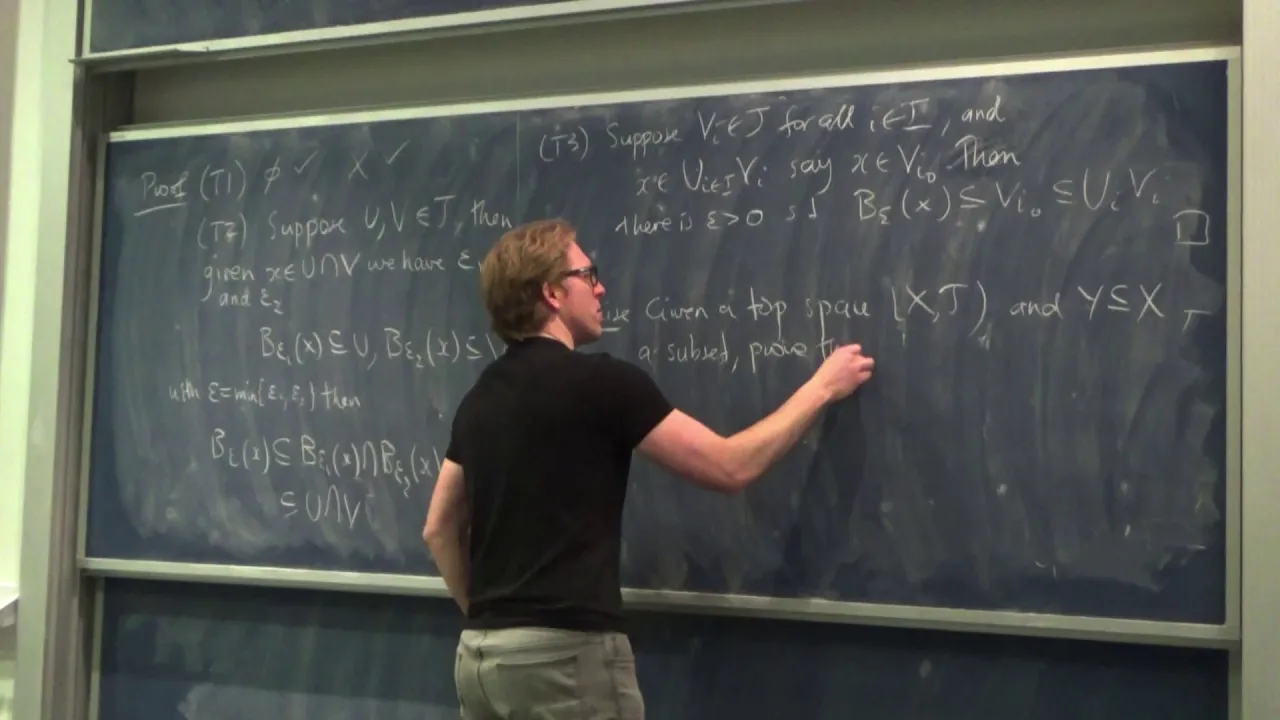 Proof (T1) ∅ ✓ X ✓
(T2) Suppose U, V ∈ T, then
given x ∈ U∩V we have ε
and ε₂
B_ε₁(x) ⊆ U, B_ε₂(x) ⊆
with ε = min{ε₁, ε₂} then
B_ε(x) ⊆ B_ε₁(x) ∩ B_ε₂(x)
⊆ U∩V
(T3) Suppose Vᵢ ∈ T for all i ∈ I, and
x ∈ ∪_{i∈I} Vᵢ say x ∈ V_{i₀}. Then
there is ε>0 st B_ε(x) ⊆ V_{i₀} ⊆ ∪ᵢ Vᵢ. □
Given a top space (X, T) and Y ⊆ X
a subset, prove